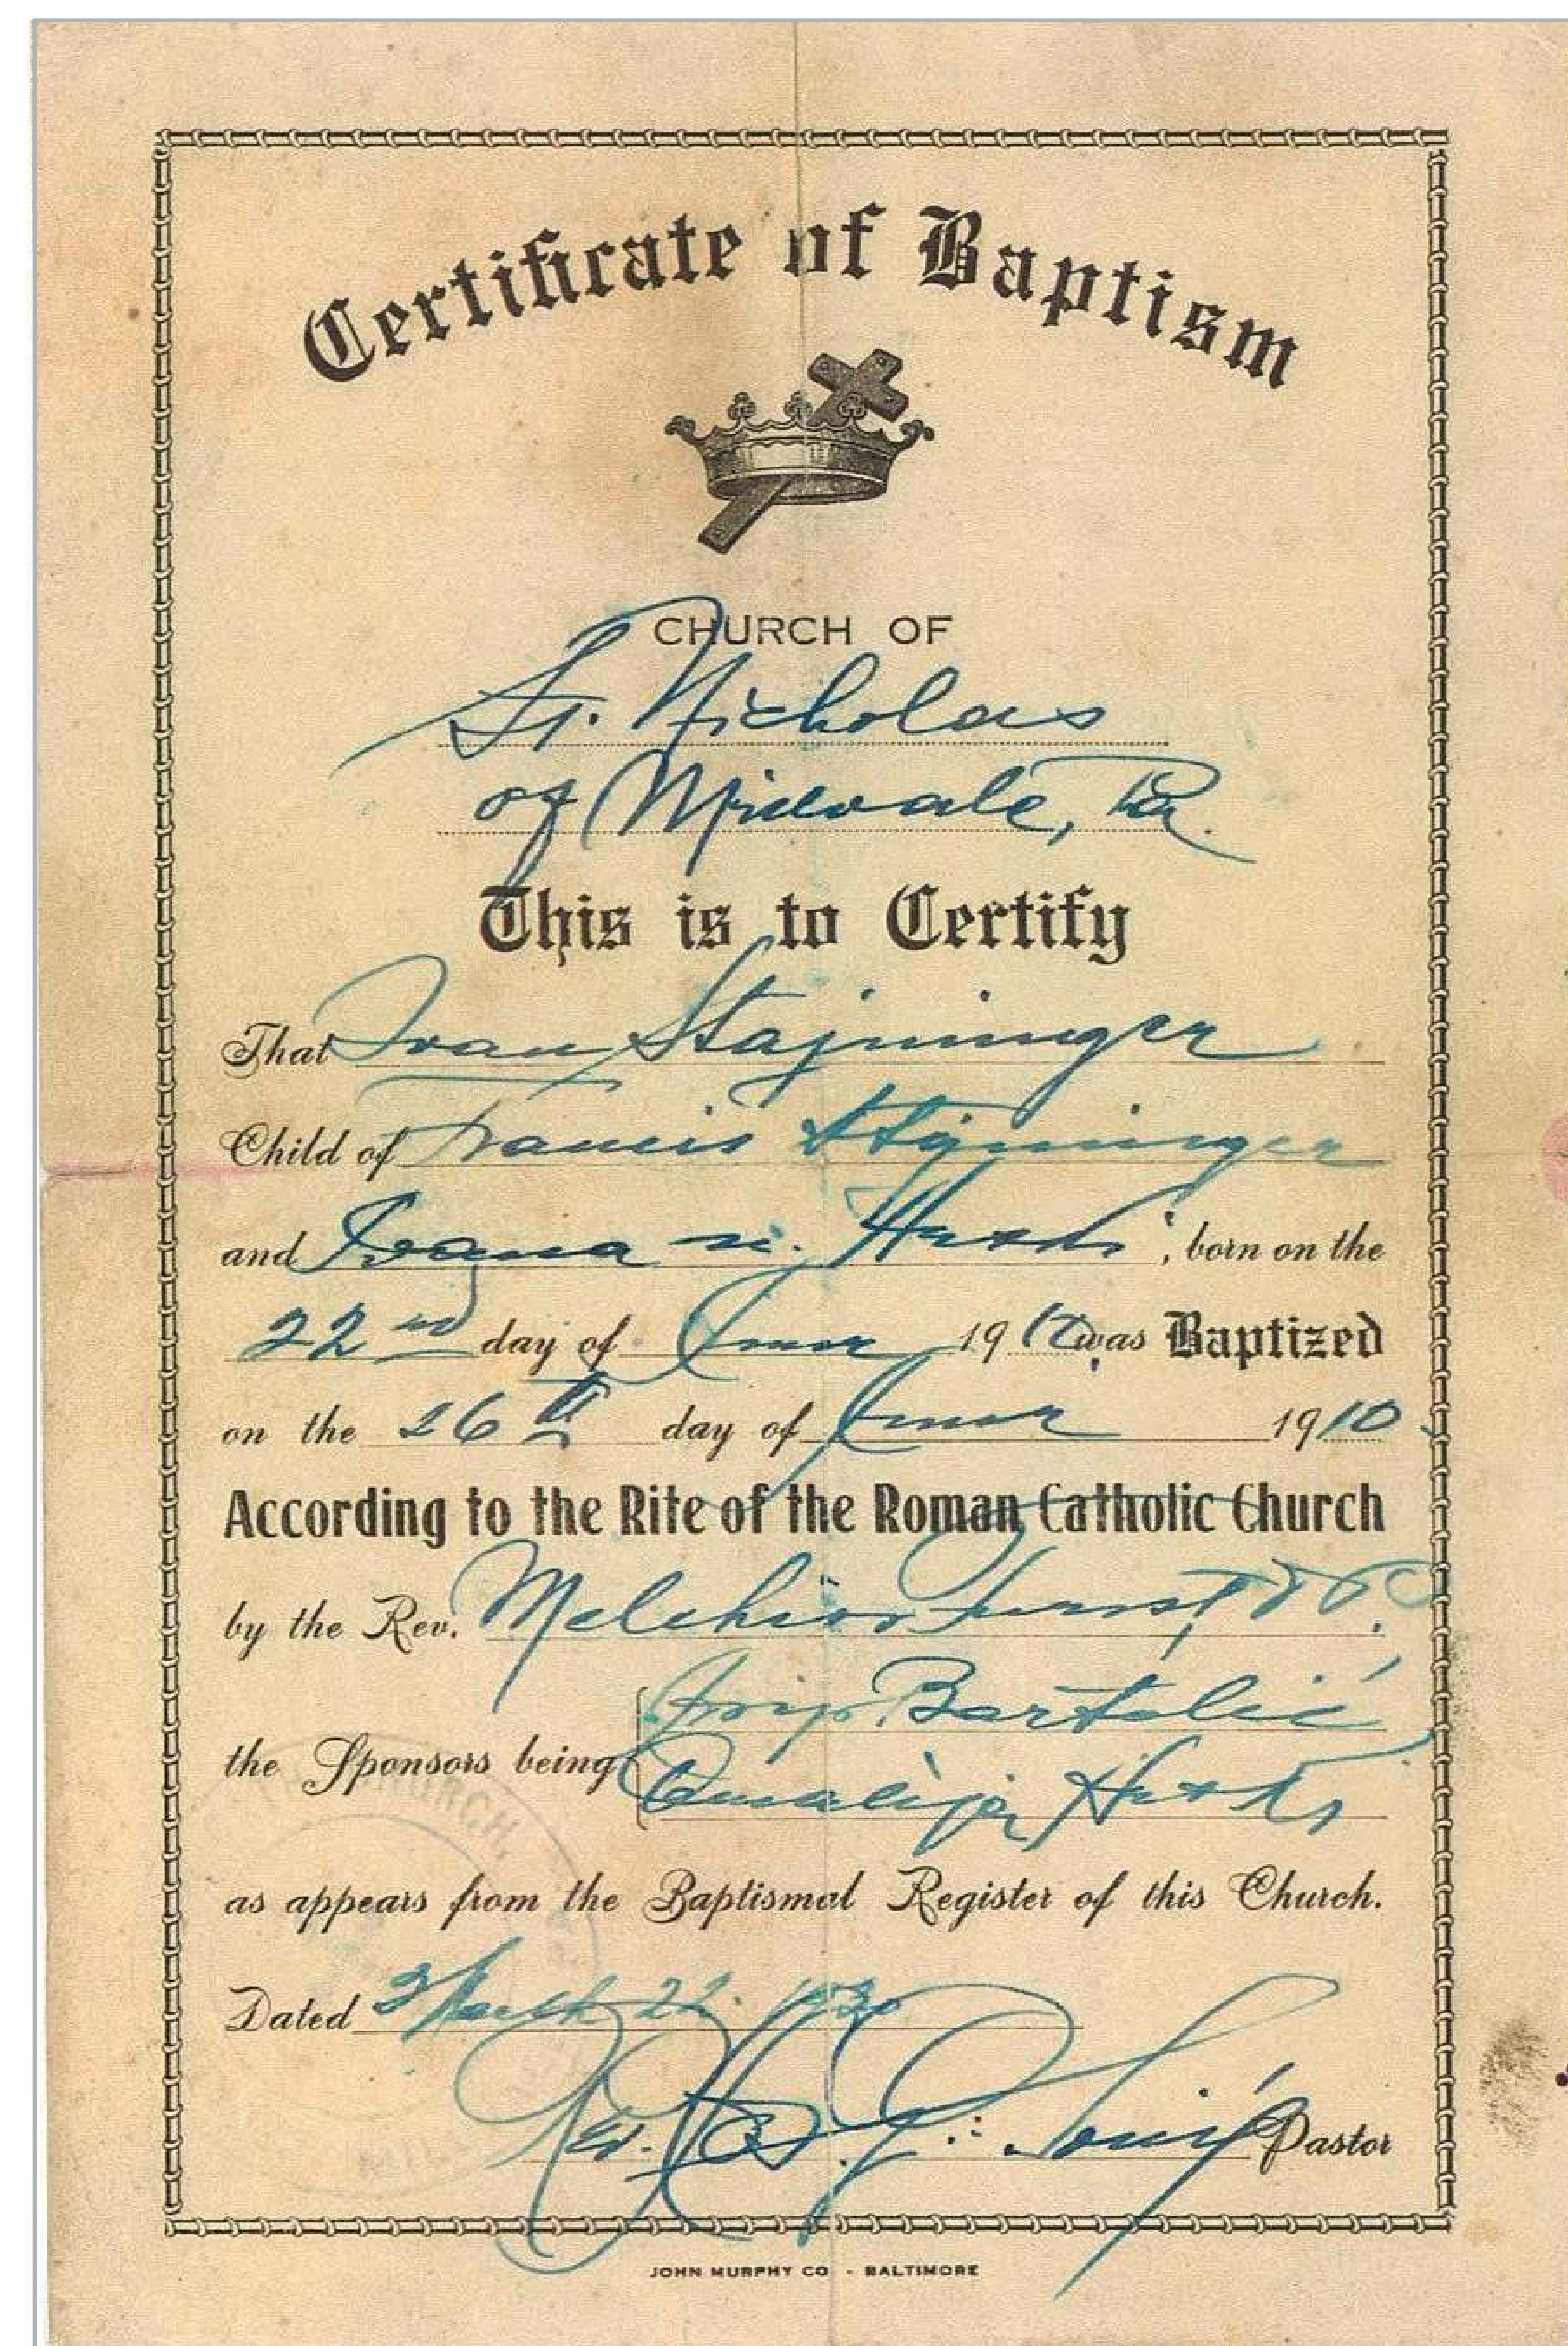 Certificate of Baptism
CHURCH OF
St. Nicholas
of Millvale, Pa.
This is to Certify
That Ivan Stajninger
Child of Francis Stajninger
and Ivana n. , born on the
22nd day of June 1910 was Baptized
on the 26th day of June 1910
According to the Rite of the Roman Catholic Church
by the Rev. Melchior
Josip Bartolić
the Sponsors being
Amalija
as appears from the Baptismal Register of this Church.
Dated March 1930
Rev. Pastor
JOHN MURPHY CO - BALTIMORE